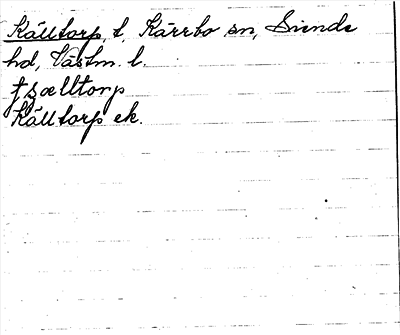 Källtorp, t, Kärrbo sn, Siende
hd, Västm. l.
tʒælltorp
Källtorp ek.